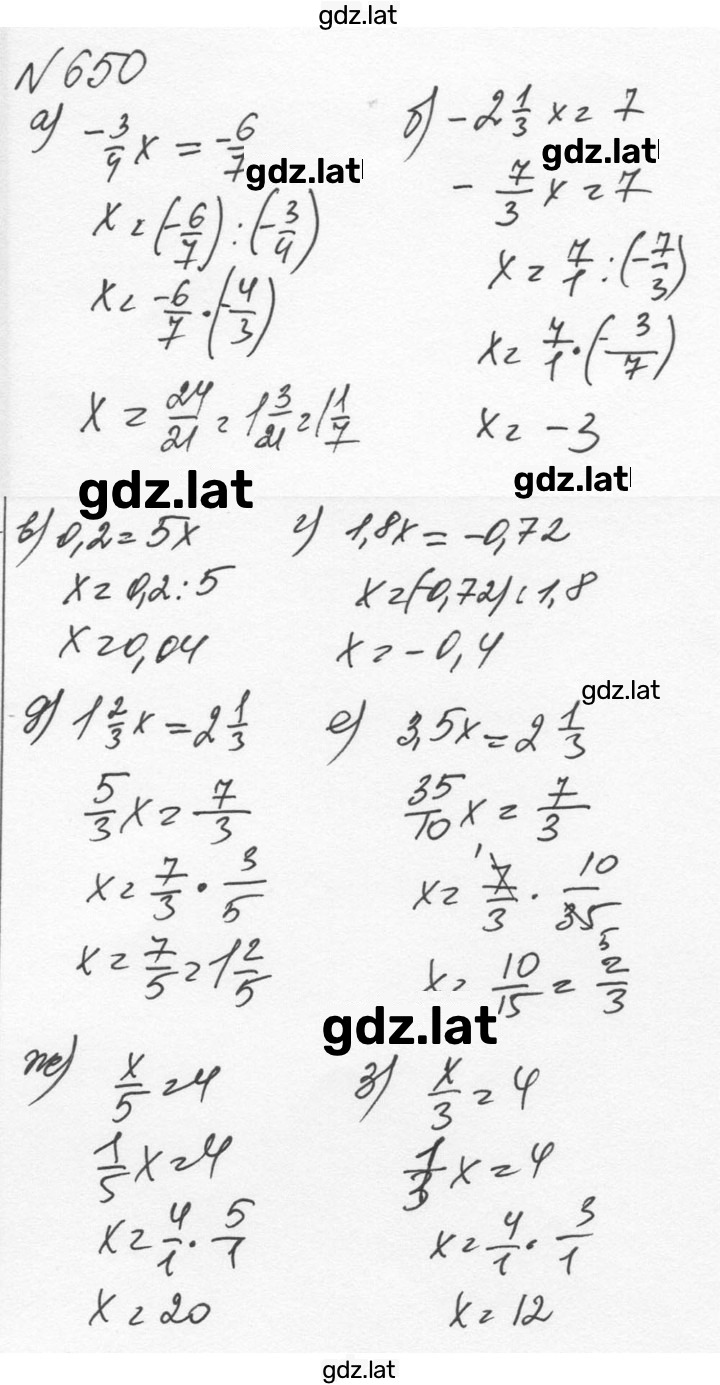 gdz.lat
N 650
а) -3/4 x = -6/7
gdz.lat
x = (-6/7) : (-3/4)
x = -6/7 · (-4/3)
x = 24/21 = 1 3/21 = 1 1/7
gdz.lat
б) -2 1/3 x = 7
gdz.lat
- 7/3 x = 7
x = 7/1 : (-7/3)
x = 7/1 · (-3/7)
x = -3
gdz.lat
в) 0,2 = 5x
x = 0,2 : 5
x = 0,04
г) 1,8x = -0,72
x = (-0,72) : 1,8
x = -0,4
gdz.lat
д) 1 2/3 x = 2 1/3
5/3 x = 7/3
x = 7/3 · 3/5
x = 7/5 = 1 2/5
е) 3,5x = 2 1/3
35/10 x = 7/3
1
x = 7/3 · 10/35
5
x = 10/15 = 2/3
gdz.lat
ж) x/5 = 4
1/5 x = 4
x = 4/1 · 5/1
x = 20
з) x/3 = 4
1/3 x = 4
x = 4/1 · 3/1
x = 12
gdz.lat